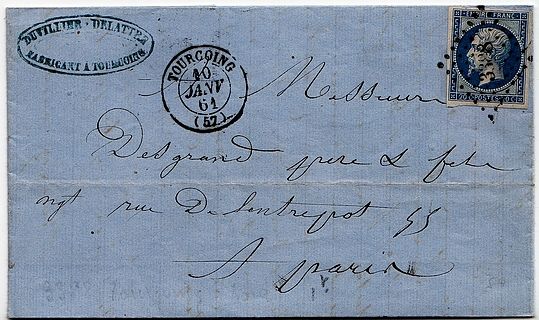 DUVILLIER-DELATTRE
FABRICANT A TOURCOING
TOURCOING
10
JANV
61
(57)
EMPIRE FRANC
20 C POSTES 20 C
Messieurs
Desgrand pere &
ngt rue De Lentrepot
A paris